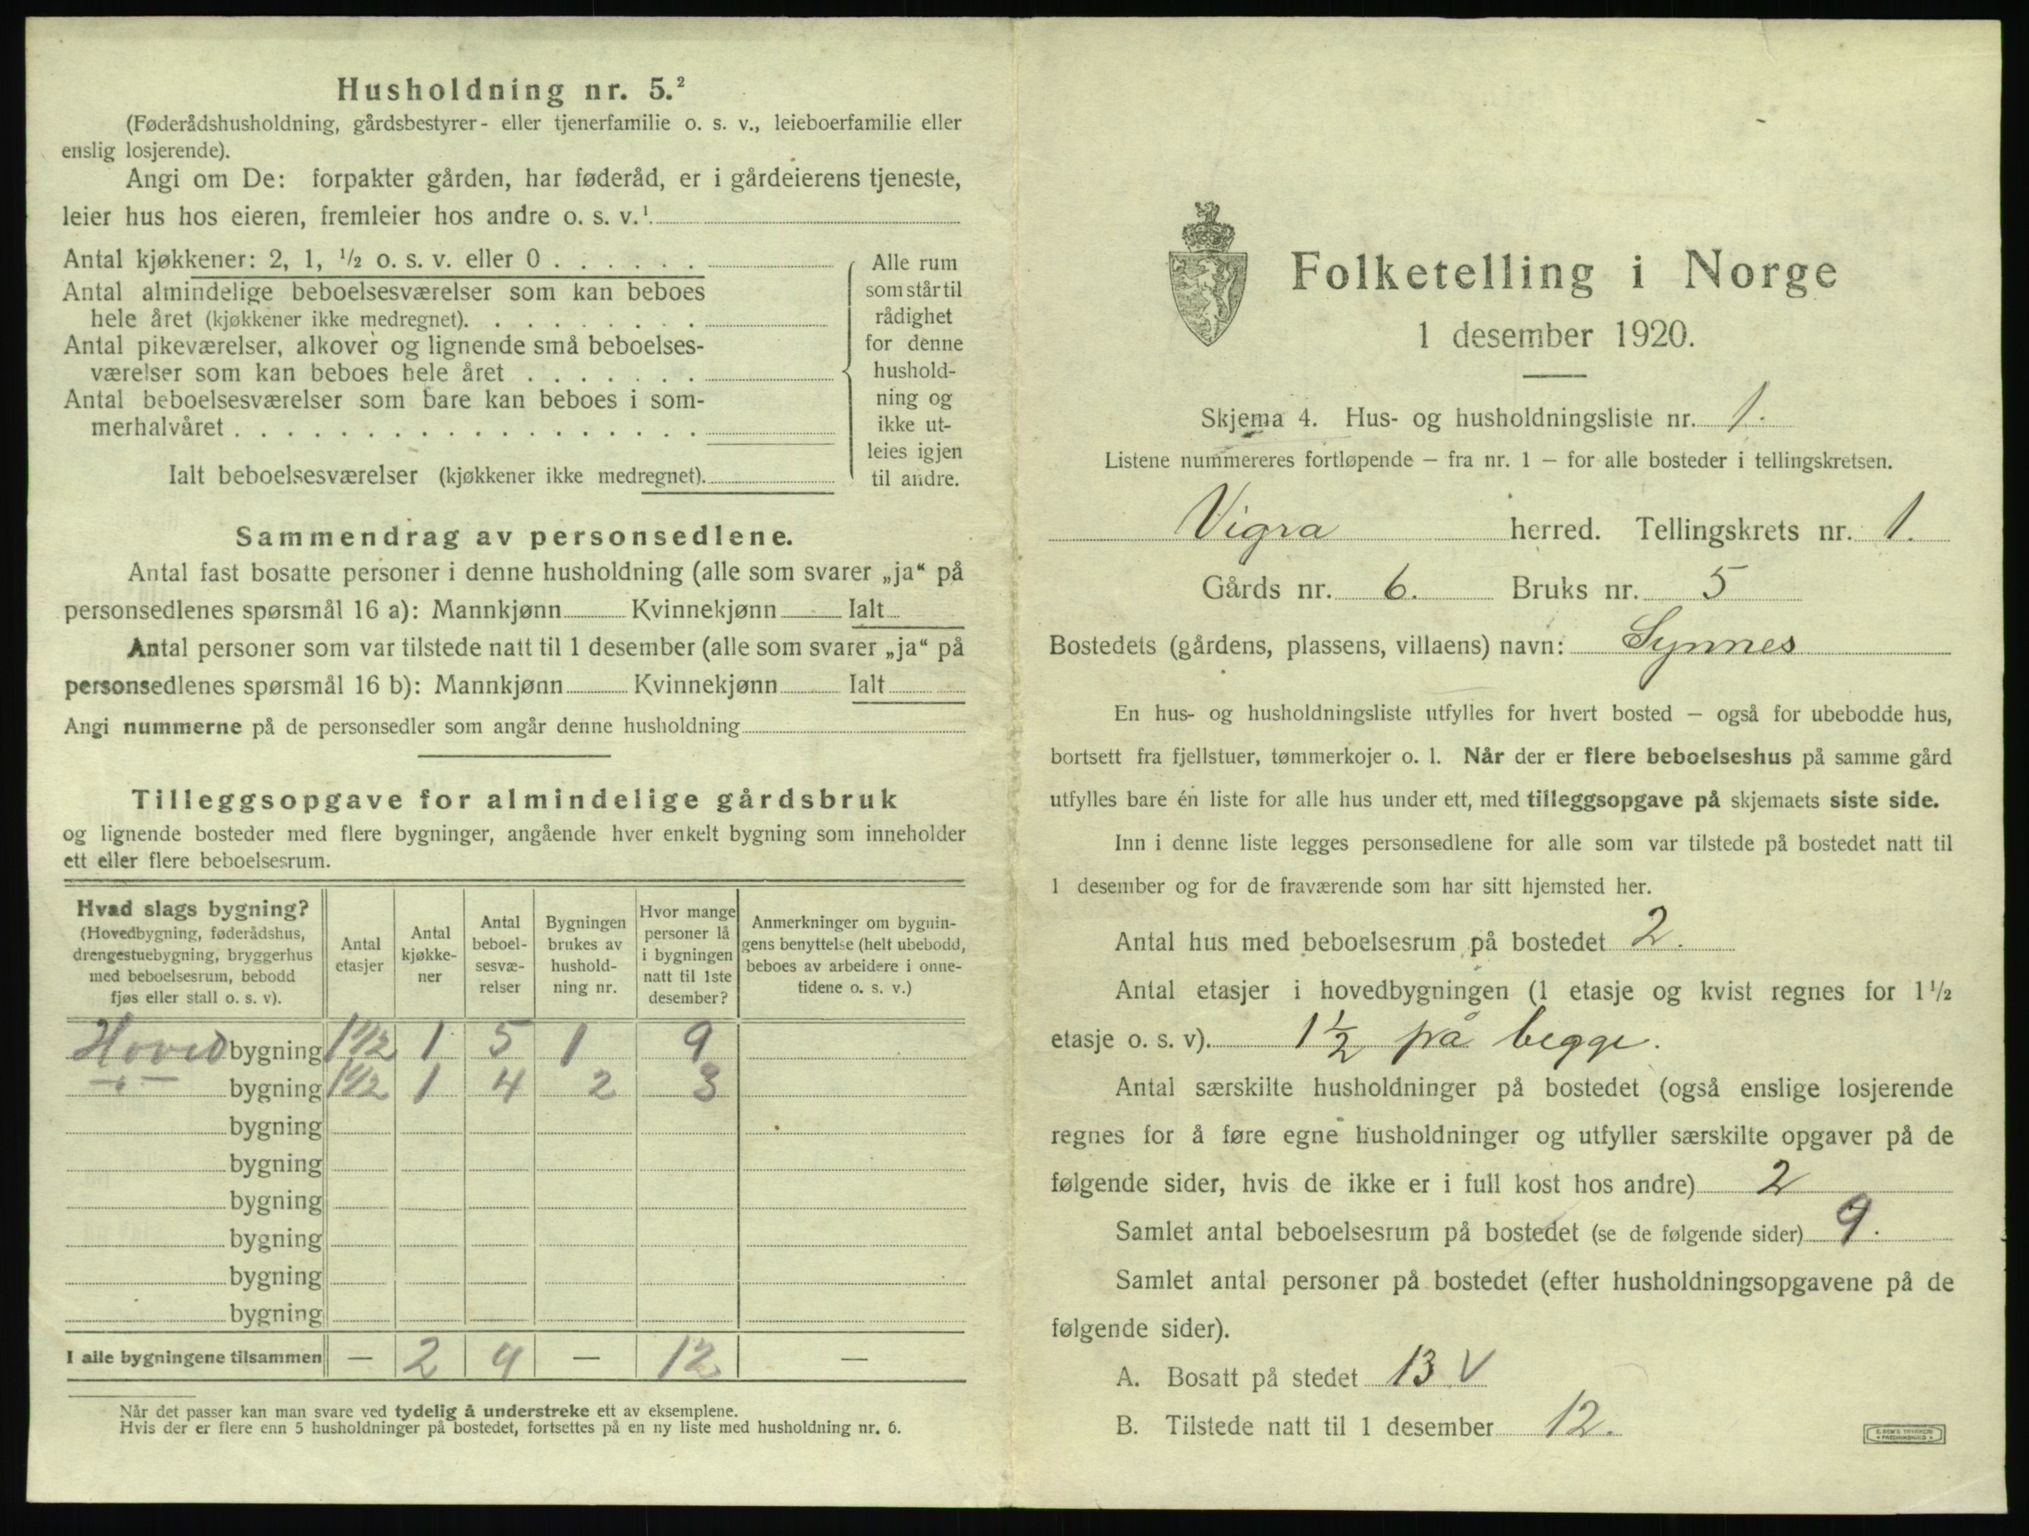 Husholdning nr. 5.²
(Føderådshusholdning, gårdsbestyrer- eller tjenerfamilie o. s. v., leieboerfamilie eller
enslig losjerende).
Angi om De: forpakter gården, har føderåd, er i gårdeierens tjeneste,
leier hus hos eieren, fremleier hos andre o. s. v.¹
Antal kjøkkener: 2, 1, ½ o. s. v. eller 0 . . . . . .
Antal almindelige beboelsesværelser som kan beboes
hele året (kjøkkener ikke medregnet). . . . . . . . .
Antal pikeværelser, alkover og lignende små beboelses-
værelser som kan beboes hele året . . . . . . .
Antal beboelsesværelser som bare kan beboes i som-
merhalvåret . . . . . . . . . . . . . . . . .
Ialt beboelsesværelser (kjøkkener ikke medregnet).
Alle rum
som står til
rådighet
for denne
hushold-
ning og
ikke ut-
leies igjen
til andre.
Sammendrag av personsedlene.
Antal fast bosatte personer i denne husholdning (alle som svarer „ja“ på
personsedlenes spørsmål 16 a): Mannkjønn Kvinnekjønn Ialt
Antal personer som var tilstede natt til 1 desember (alle som svarer „ja“ på
personsedlenes spørsmål 16 b): Mannkjønn Kvinnekjønn Ialt
Angi nummerne på de personsedler som angår denne husholdning
Tilleggsopgave for almindelige gårdsbruk
og lignende bosteder med flere bygninger, angående hver enkelt bygning som inneholder
ett eller flere beboelsesrum.
Hvad slags bygning?
(Hovedbygning, føderådshus,
drengestuebygning, bryggerhus
med beboelsesrum, bebodd
fjøs eller stall o. s. v).
Antal
etasjer
Antal
kjøkke-
ner
Antal
beboel-
sesvæ-
relser
Bygningen
brukes av
hushold-
ning nr.
Hvor mange
personer lå
i bygningen
natt til 1ste
desember?
Anmerkninger om bygnin-
gens benyttelse (helt ubebodd,
beboes av arbeidere i onne-
tidene o. s. v.)
Hoved bygning 1 1/2 1 5 1 9
—"— bygning 1 1/2 1 4 2 3
bygning
bygning
bygning
bygning
bygning
bygning
I alle bygningene tilsammen — 2 9 — 12 —
Når det passer kan man svare ved tydelig å understreke ett av eksemplene.
Hvis der er flere enn 5 husholdninger på bostedet, fortsettes på en ny liste med husholdning nr. 6.
Folketelling i Norge
1 desember 1920.
Skjema 4. Hus- og husholdningsliste nr. 1.
Listene nummereres fortløpende – fra nr. 1 – for alle bosteder i tellingskretsen.
Vigra herred. Tellingskrets nr. 1.
Gårds nr. 6. Bruks nr. 5
Bostedets (gårdens, plassens, villaens) navn: Synnes
En hus- og husholdningsliste utfylles for hvert bosted – også for ubebodde hus,
bortsett fra fjellstuer, tømmerkojer o. l. Når der er flere beboelseshus på samme gård
utfylles bare én liste for alle hus under ett, med tilleggsopgave på skjemaets siste side.
Inn i denne liste legges personsedlene for alle som var tilstede på bostedet natt til
1 desember og for de fraværende som har sitt hjemsted her.
Antal hus med beboelsesrum på bostedet 2.
Antal etasjer i hovedbygningen (1 etasje og kvist regnes for 1½
etasje o. s. v). 1½ på begge.
Antal særskilte husholdninger på bostedet (også enslige losjerende
regnes for å føre egne husholdninger og utfyller særskilte opgaver på de
følgende sider, hvis de ikke er i full kost hos andre) 2
Samlet antal beboelsesrum på bostedet (se de følgende sider) 9.
Samlet antal personer på bostedet (efter husholdningsopgavene på de
følgende sider).
A. Bosatt på stedet 13 V
B. Tilstede natt til 1 desember 12.